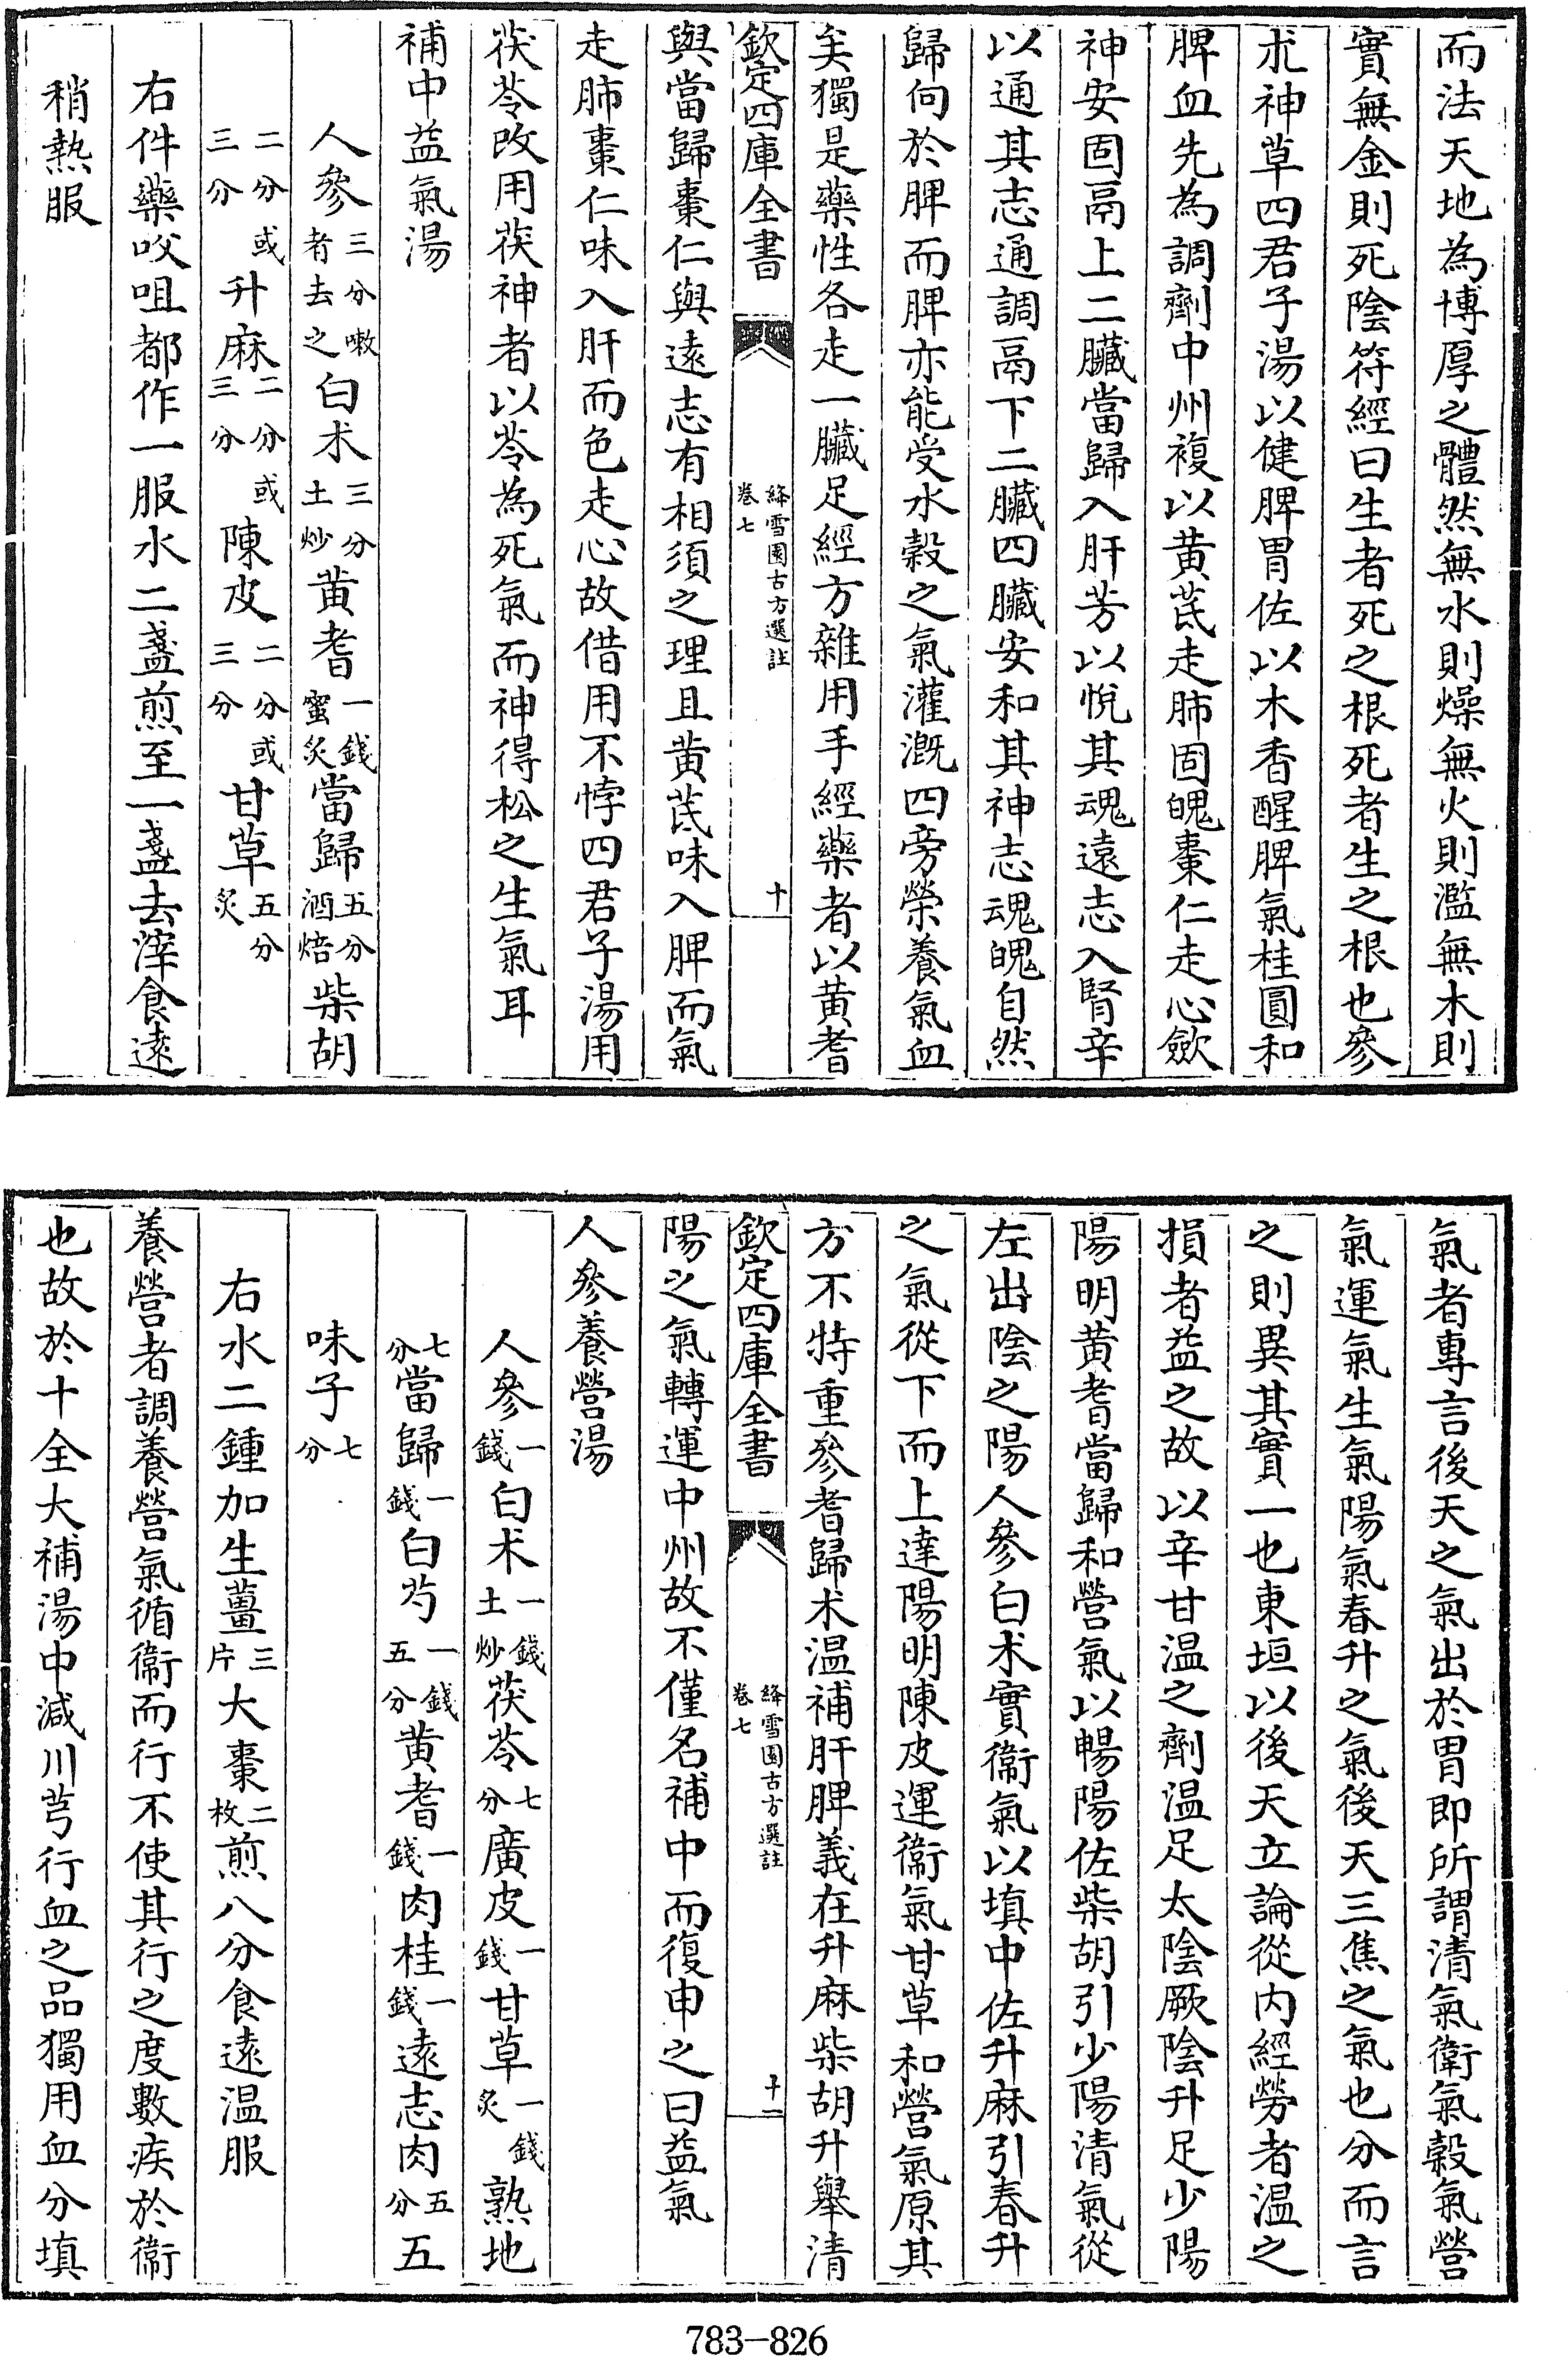 而法天地為博厚之體然無水則燥無火則濫無木則
實無金則死陰符經曰生者死之根死者生之根也參
朮神草四君子湯以健脾胃佐以木香醒脾氣桂圓和
脾血先為調劑中州複以黄芪走肺固魄棗仁走心斂
神安固鬲上二臟當歸入肝芳以悅其魂遠志入腎辛
以通其志通調鬲下二臟四臟安和其神志魂魄自然
歸向於脾而脾亦能受水穀之氣灌溉四旁榮養氣血
矣獨是藥性各走一臟足經方雜用手經藥者以黄耆
欽定四庫全書
絳雪園古方選註
卷七
十
與當歸棗仁與遠志有相須之理且黄芪味入脾而氣
走肺棗仁味入肝而色走心故借用不悖四君子湯用
茯苓改用茯神者以苓為死氣而神得松之生氣耳
補中益氣湯
人參三分嗽者去之白术三分土炒黄耆一錢蜜炙當歸五分酒焙柴胡
二分或三分升麻二分或三分陳皮二分或三分甘草五分炙
右件藥㕮咀都作一服水二盞煎至一盞去滓食遠
稍熱服
氣者專言後天之氣出於胃即所謂清氣衛氣穀氣營
氣運氣生氣陽氣春升之氣後天三焦之氣也分而言
之則異其實一也東垣以後天立論從内經勞者温之
損者益之故以辛甘温之劑温足太陰厥陰升足少陽
陽明黄耆當歸和營氣以暢陽佐柴胡引少陽清氣從
左出陰之陽人參白术實衛氣以填中佐升麻引春升
之氣從下而上達陽明陳皮運衛氣甘草和營氣原其
方不特重參耆歸术温補肝脾義在升麻柴胡升舉清
欽定四庫全書
絳雪園古方選註
卷七
十一
陽之氣轉運中州故不僅名補中而復申之曰益氣
人參養營湯
人參一錢白术一錢土炒茯苓七分廣皮一錢甘草一錢炙熟地
七分當歸一錢白芍一錢五分黄耆一錢肉桂一錢遠志肉五分五
味子七分
右水二鍾加生薑三片大棗二枚煎八分食遠温服
養營者調養營氣循衛而行不使其行之度數疾於衛
也故於十全大補湯中減川芎行血之品獨用血分填
783-826